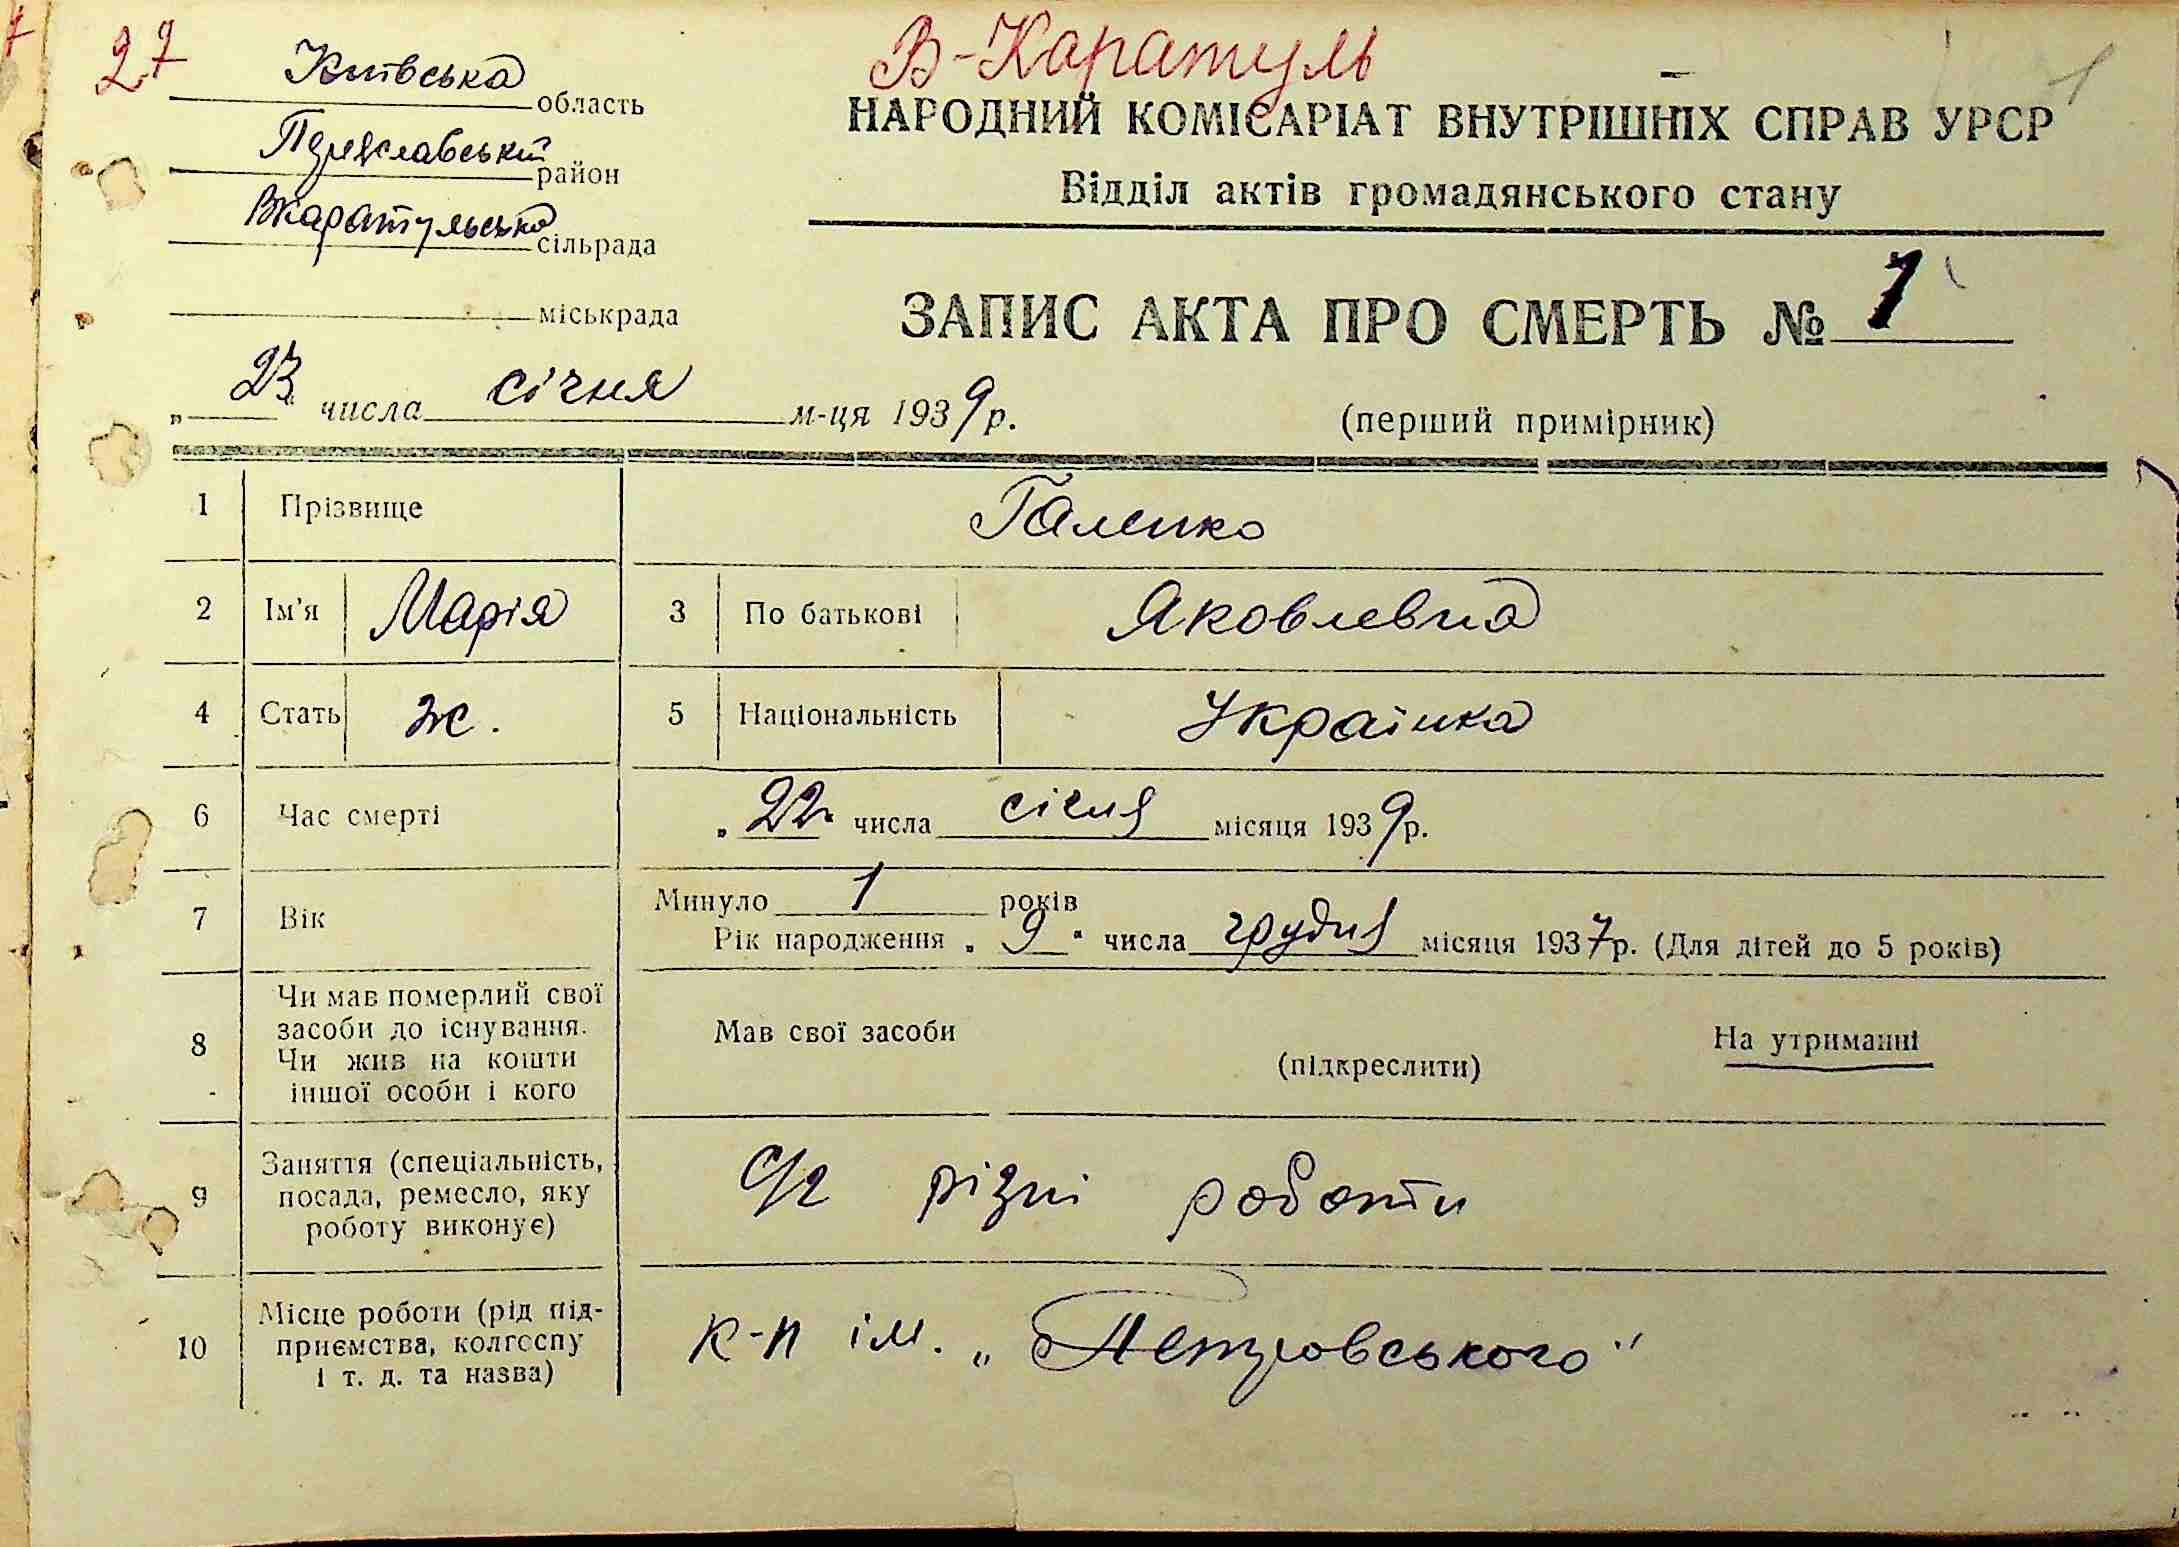 27
В-Каратуль
Київська область
Переяславський район
Вкаратульська сільрада
міськрада
НАРОДНИЙ КОМІСАРІАТ ВНУТРІШНІХ СПРАВ УРСР
Відділ актів громадянського стану
ЗАПИС АКТА ПРО СМЕРТЬ № 1
„23" числа січня м-ця 1939 р.
(перший примірник)
1 Прізвище Галенко
2 Ім'я Марія 3 По батькові Яковлевна
4 Стать ж. 5 Національність Українка
6 Час смерті „22" числа січня місяця 1939 р.
7 Вік Минуло 1 років
Рік народження „9" числа грудня місяця 1937 р. (Для дітей до 5 років)
8 Чи мав померлий свої
засоби до існування.
Чи жив на кошти
іншої особи і кого
Мав свої засоби (підкреслити) На утриманні
9 Заняття (спеціальність,
посада, ремесло, яку
роботу виконує)
с/г різні роботи
10 Місце роботи (рід під-
приємства, колгоспу
і т. д. та назва)
к-п ім. „Петровського"